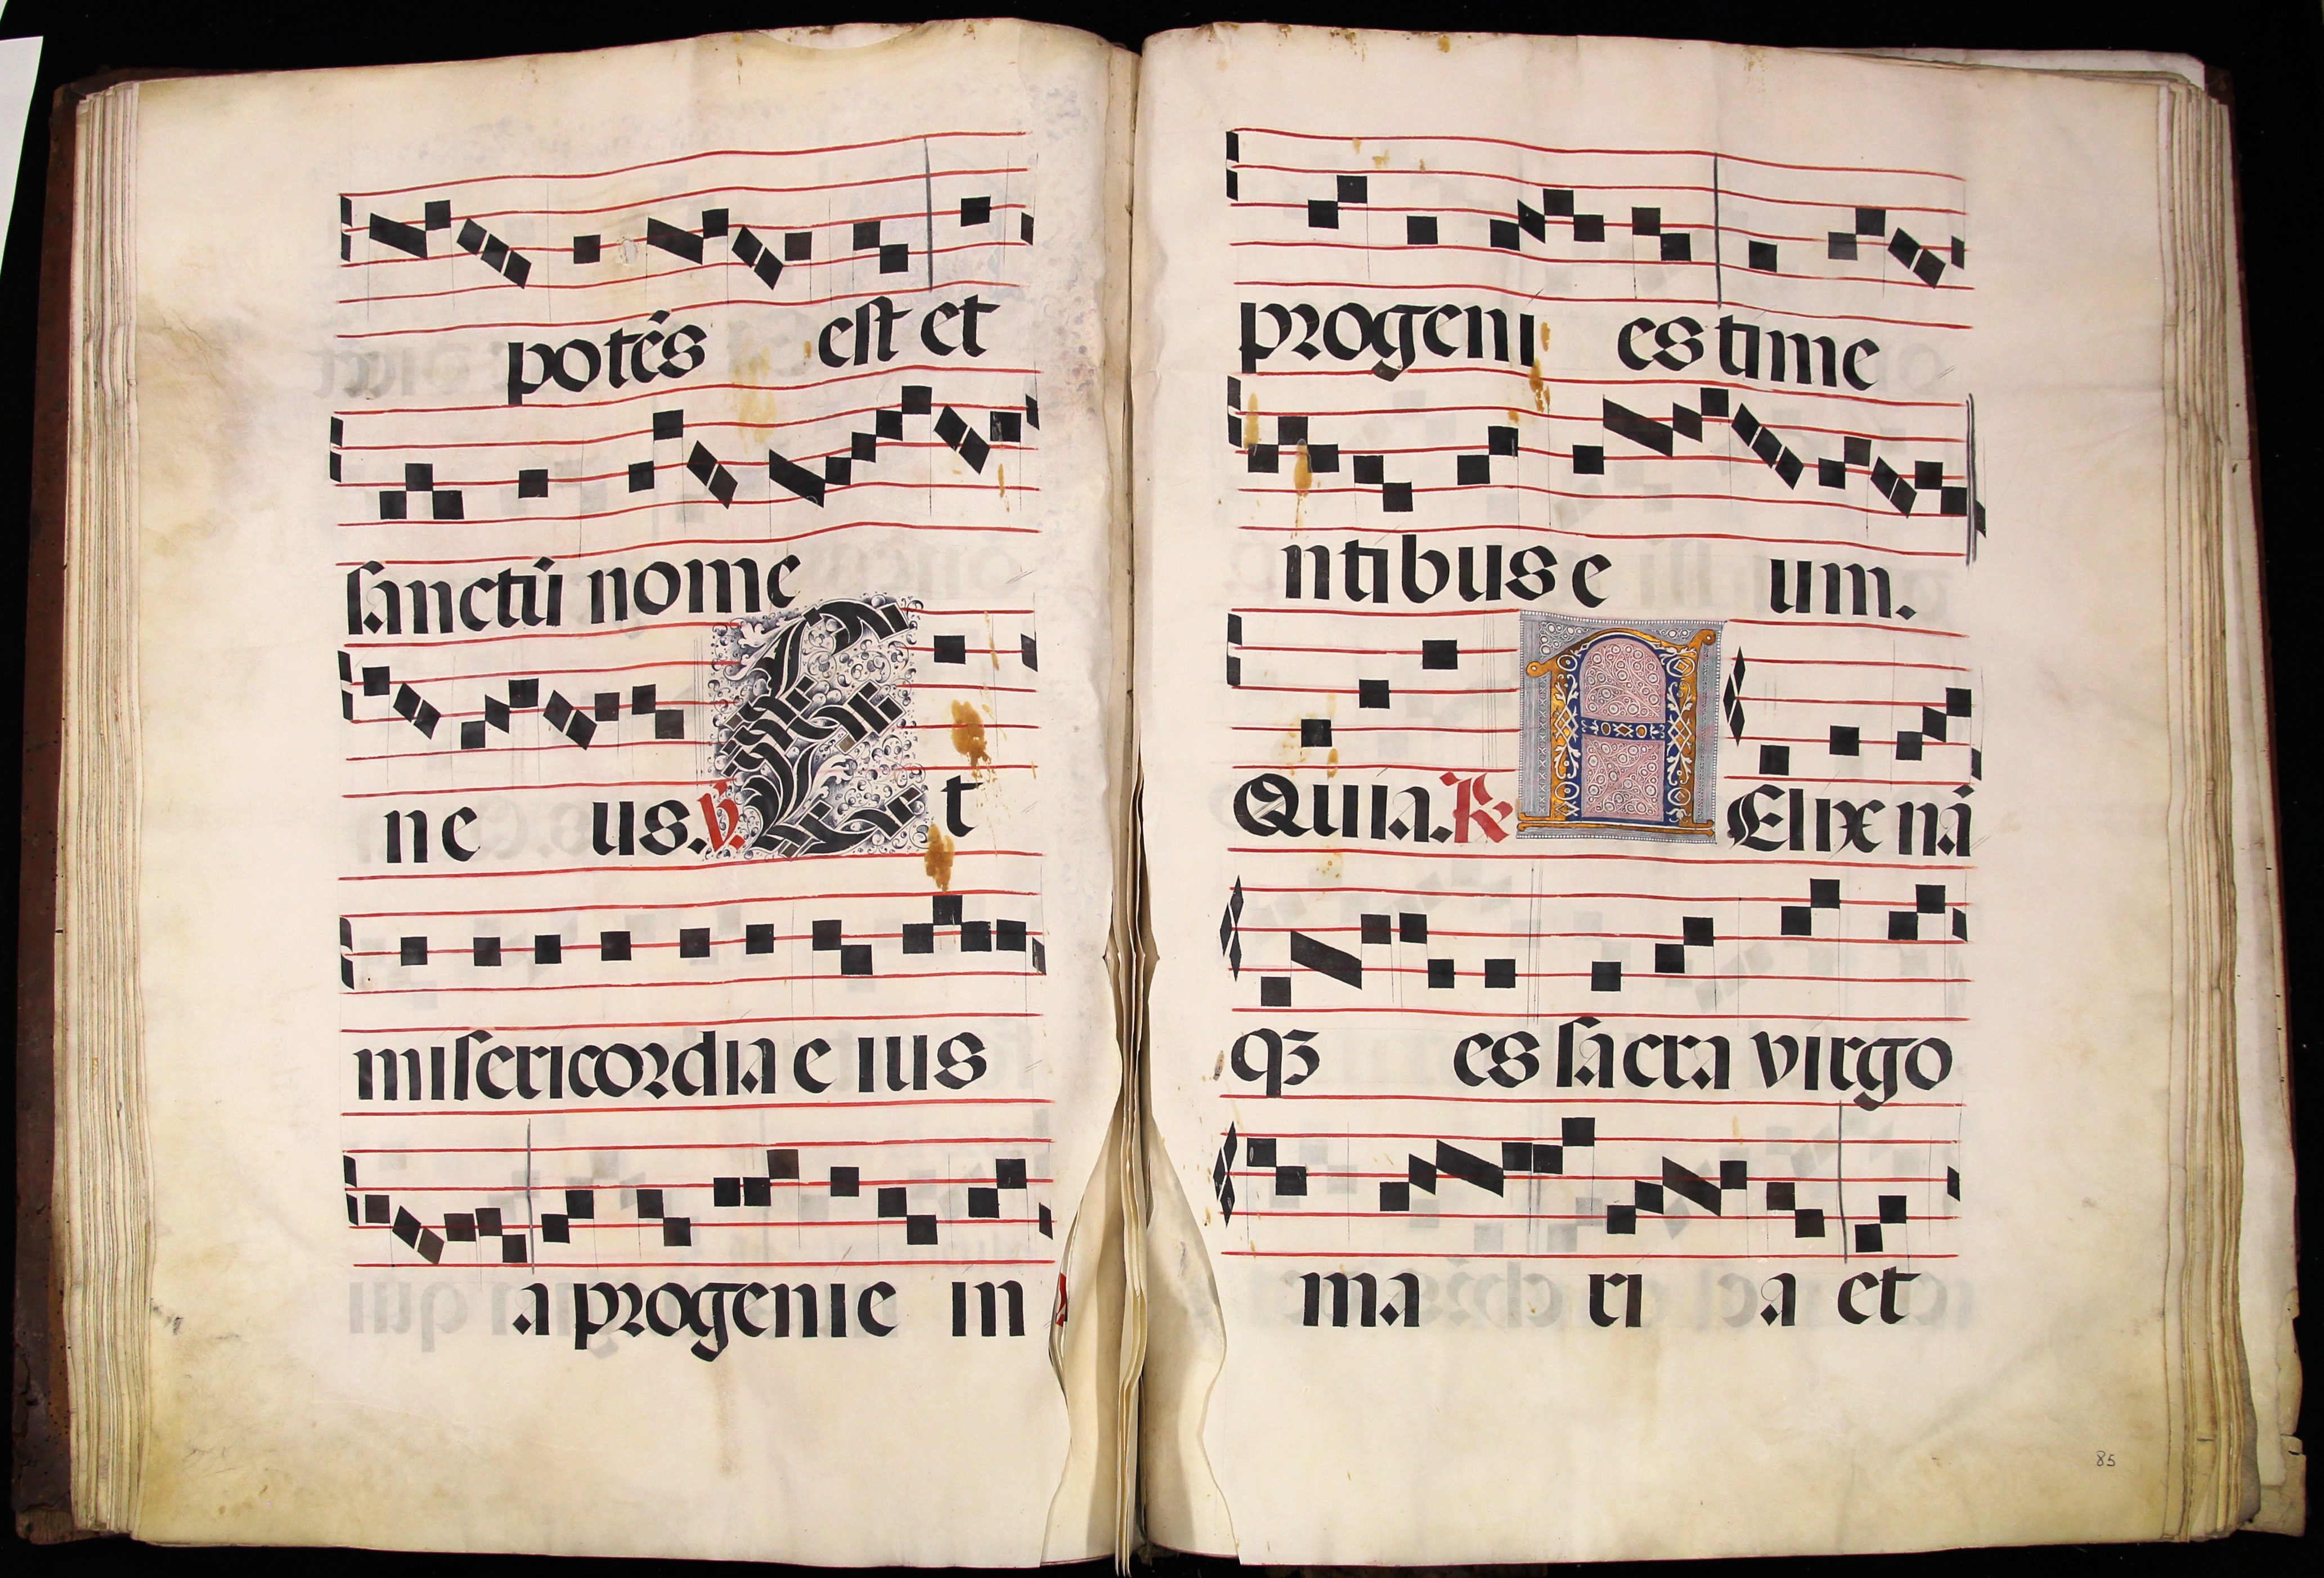 potēs est et
sanctū nome
ne us. ℣. Et
misericordia eius
a progenie in
progeni es time
ntibus e um.
Quia. ℟ FElix nā
qꝫ es sacra virgo
ma ri a et
85